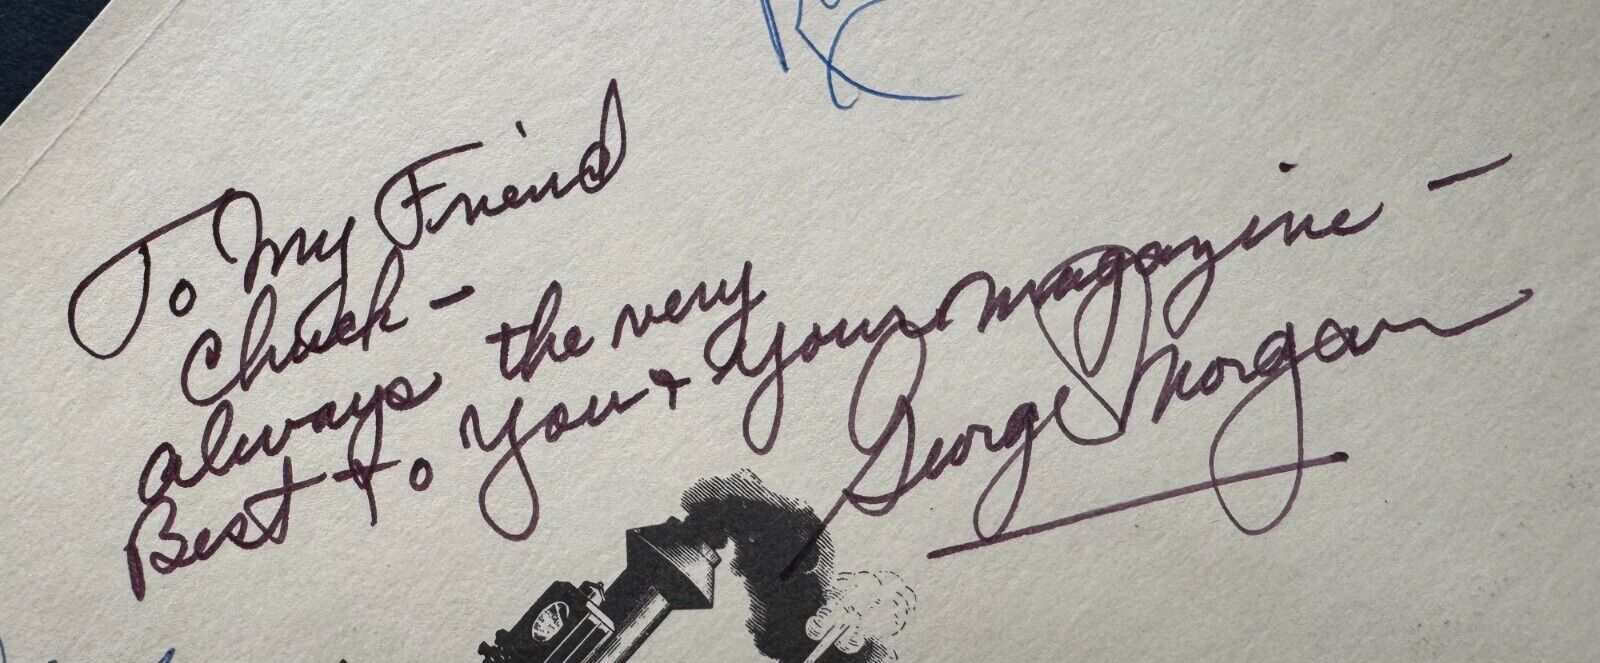 To My Friend
Chuck -
always the very
Best to You + Your Magazine -
George Morgan